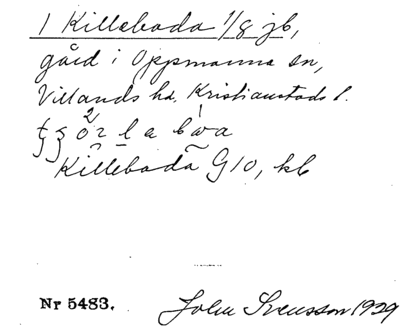 1 Killeboda 1/8 jb,
gård i Oppmanna sn,
Villands hd. Kristianstads l.
Killeboda G10, kb
Nr 5483. John Svensson 1929